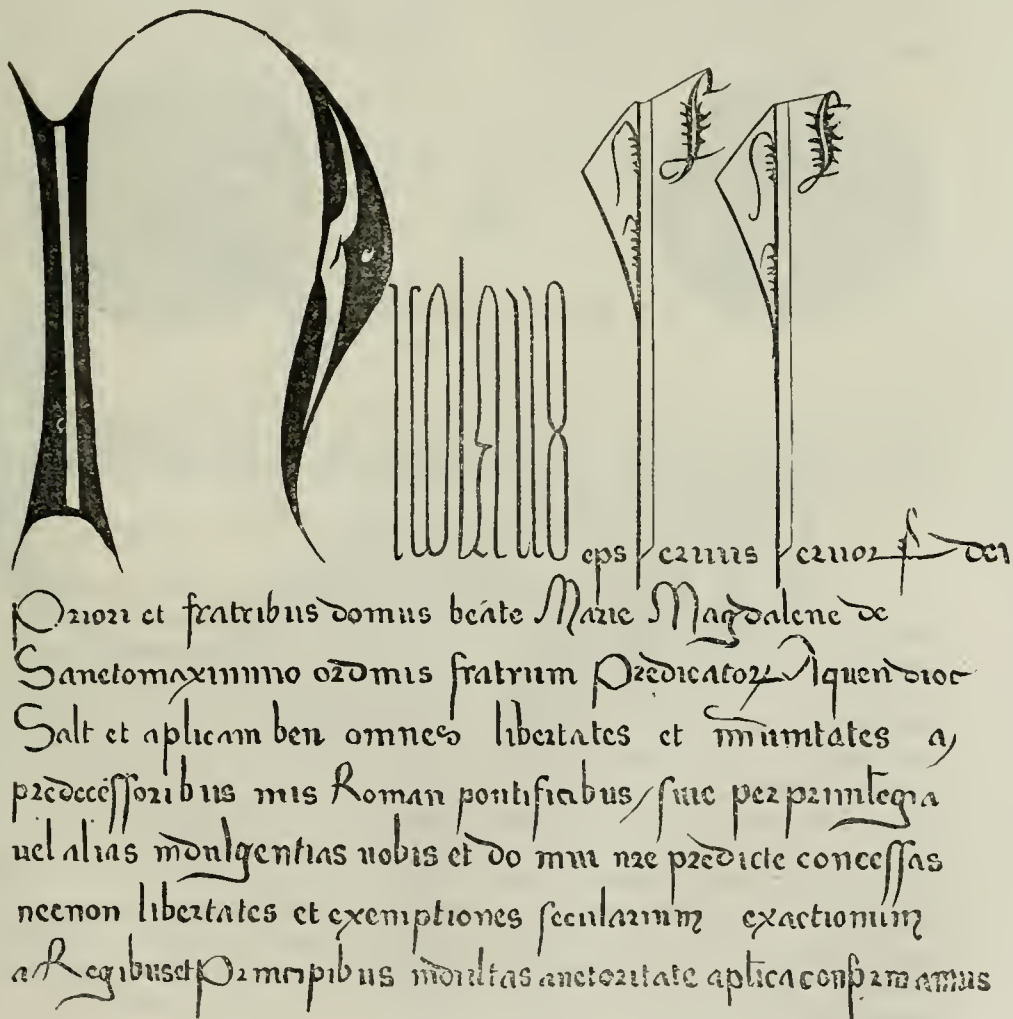 Nicolaus eps seruus seruor dei
Priori et fratribus domus beate Marie Magdalene de
Sanctomaximino ordinis fratrum Predicatoꝝ Aquen dioc
Salt et aplicam ben omnes libertates et imunitates a
predecessoribus nris Roman pontificibus / siue per priuilegia
uel alias indulgentias uobis et domui nre predicte concessas
necnon libertates et exemptiones secularium exactionum
a Regibus et Principibus indultas auctoritate aplica confirmamus